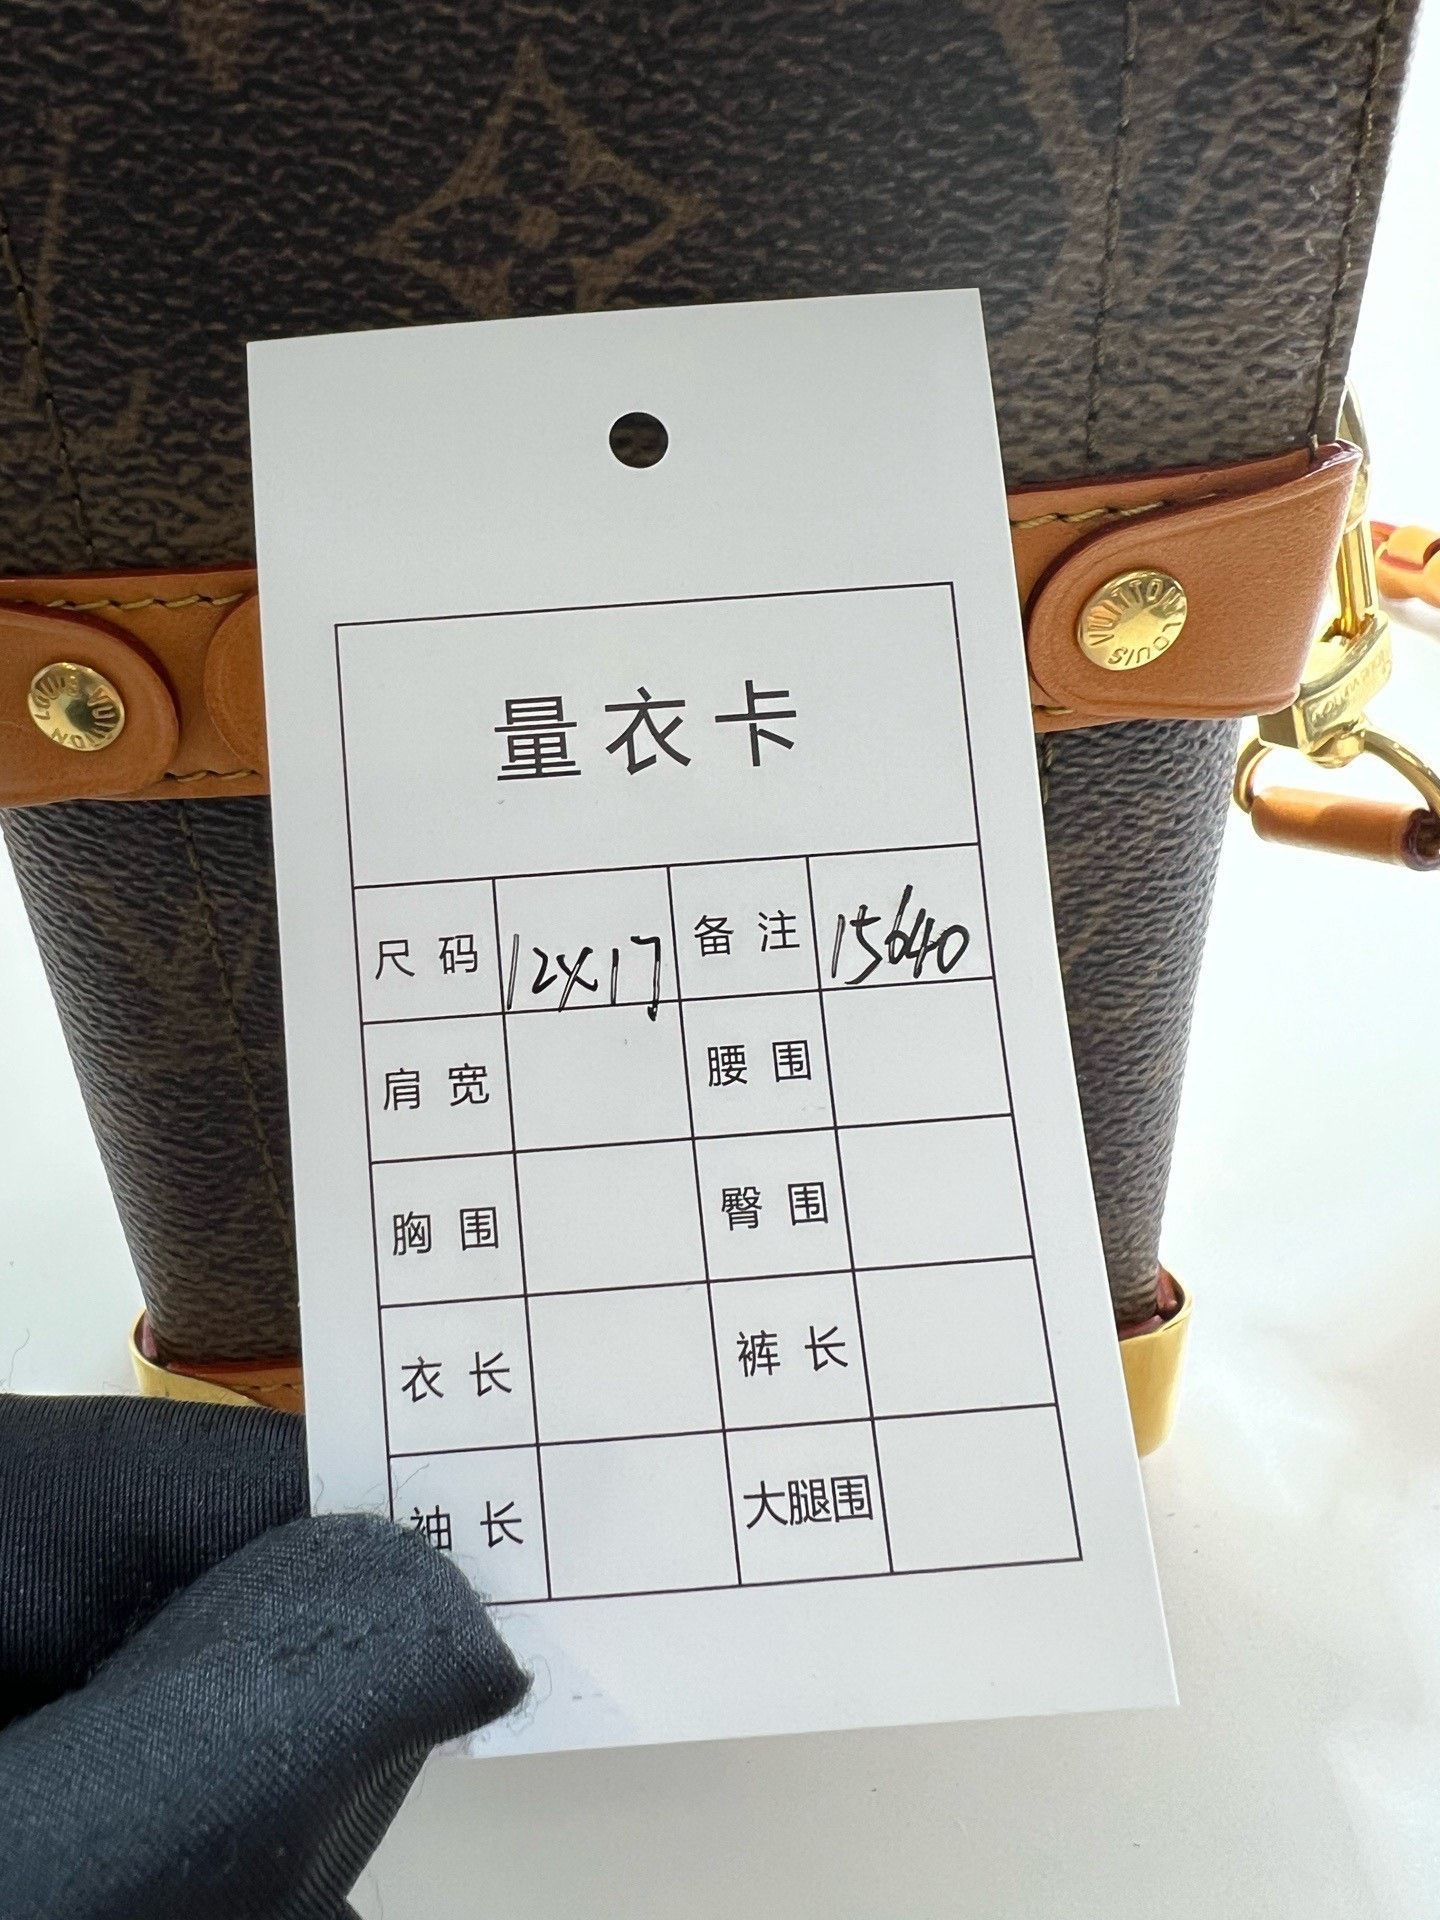 量衣卡
尺码 12X17 备注 15640
肩宽 腰围
胸围 臀围
衣长 裤长
袖长 大腿围
LOUIS VUITTON
LOUIS VUITTON